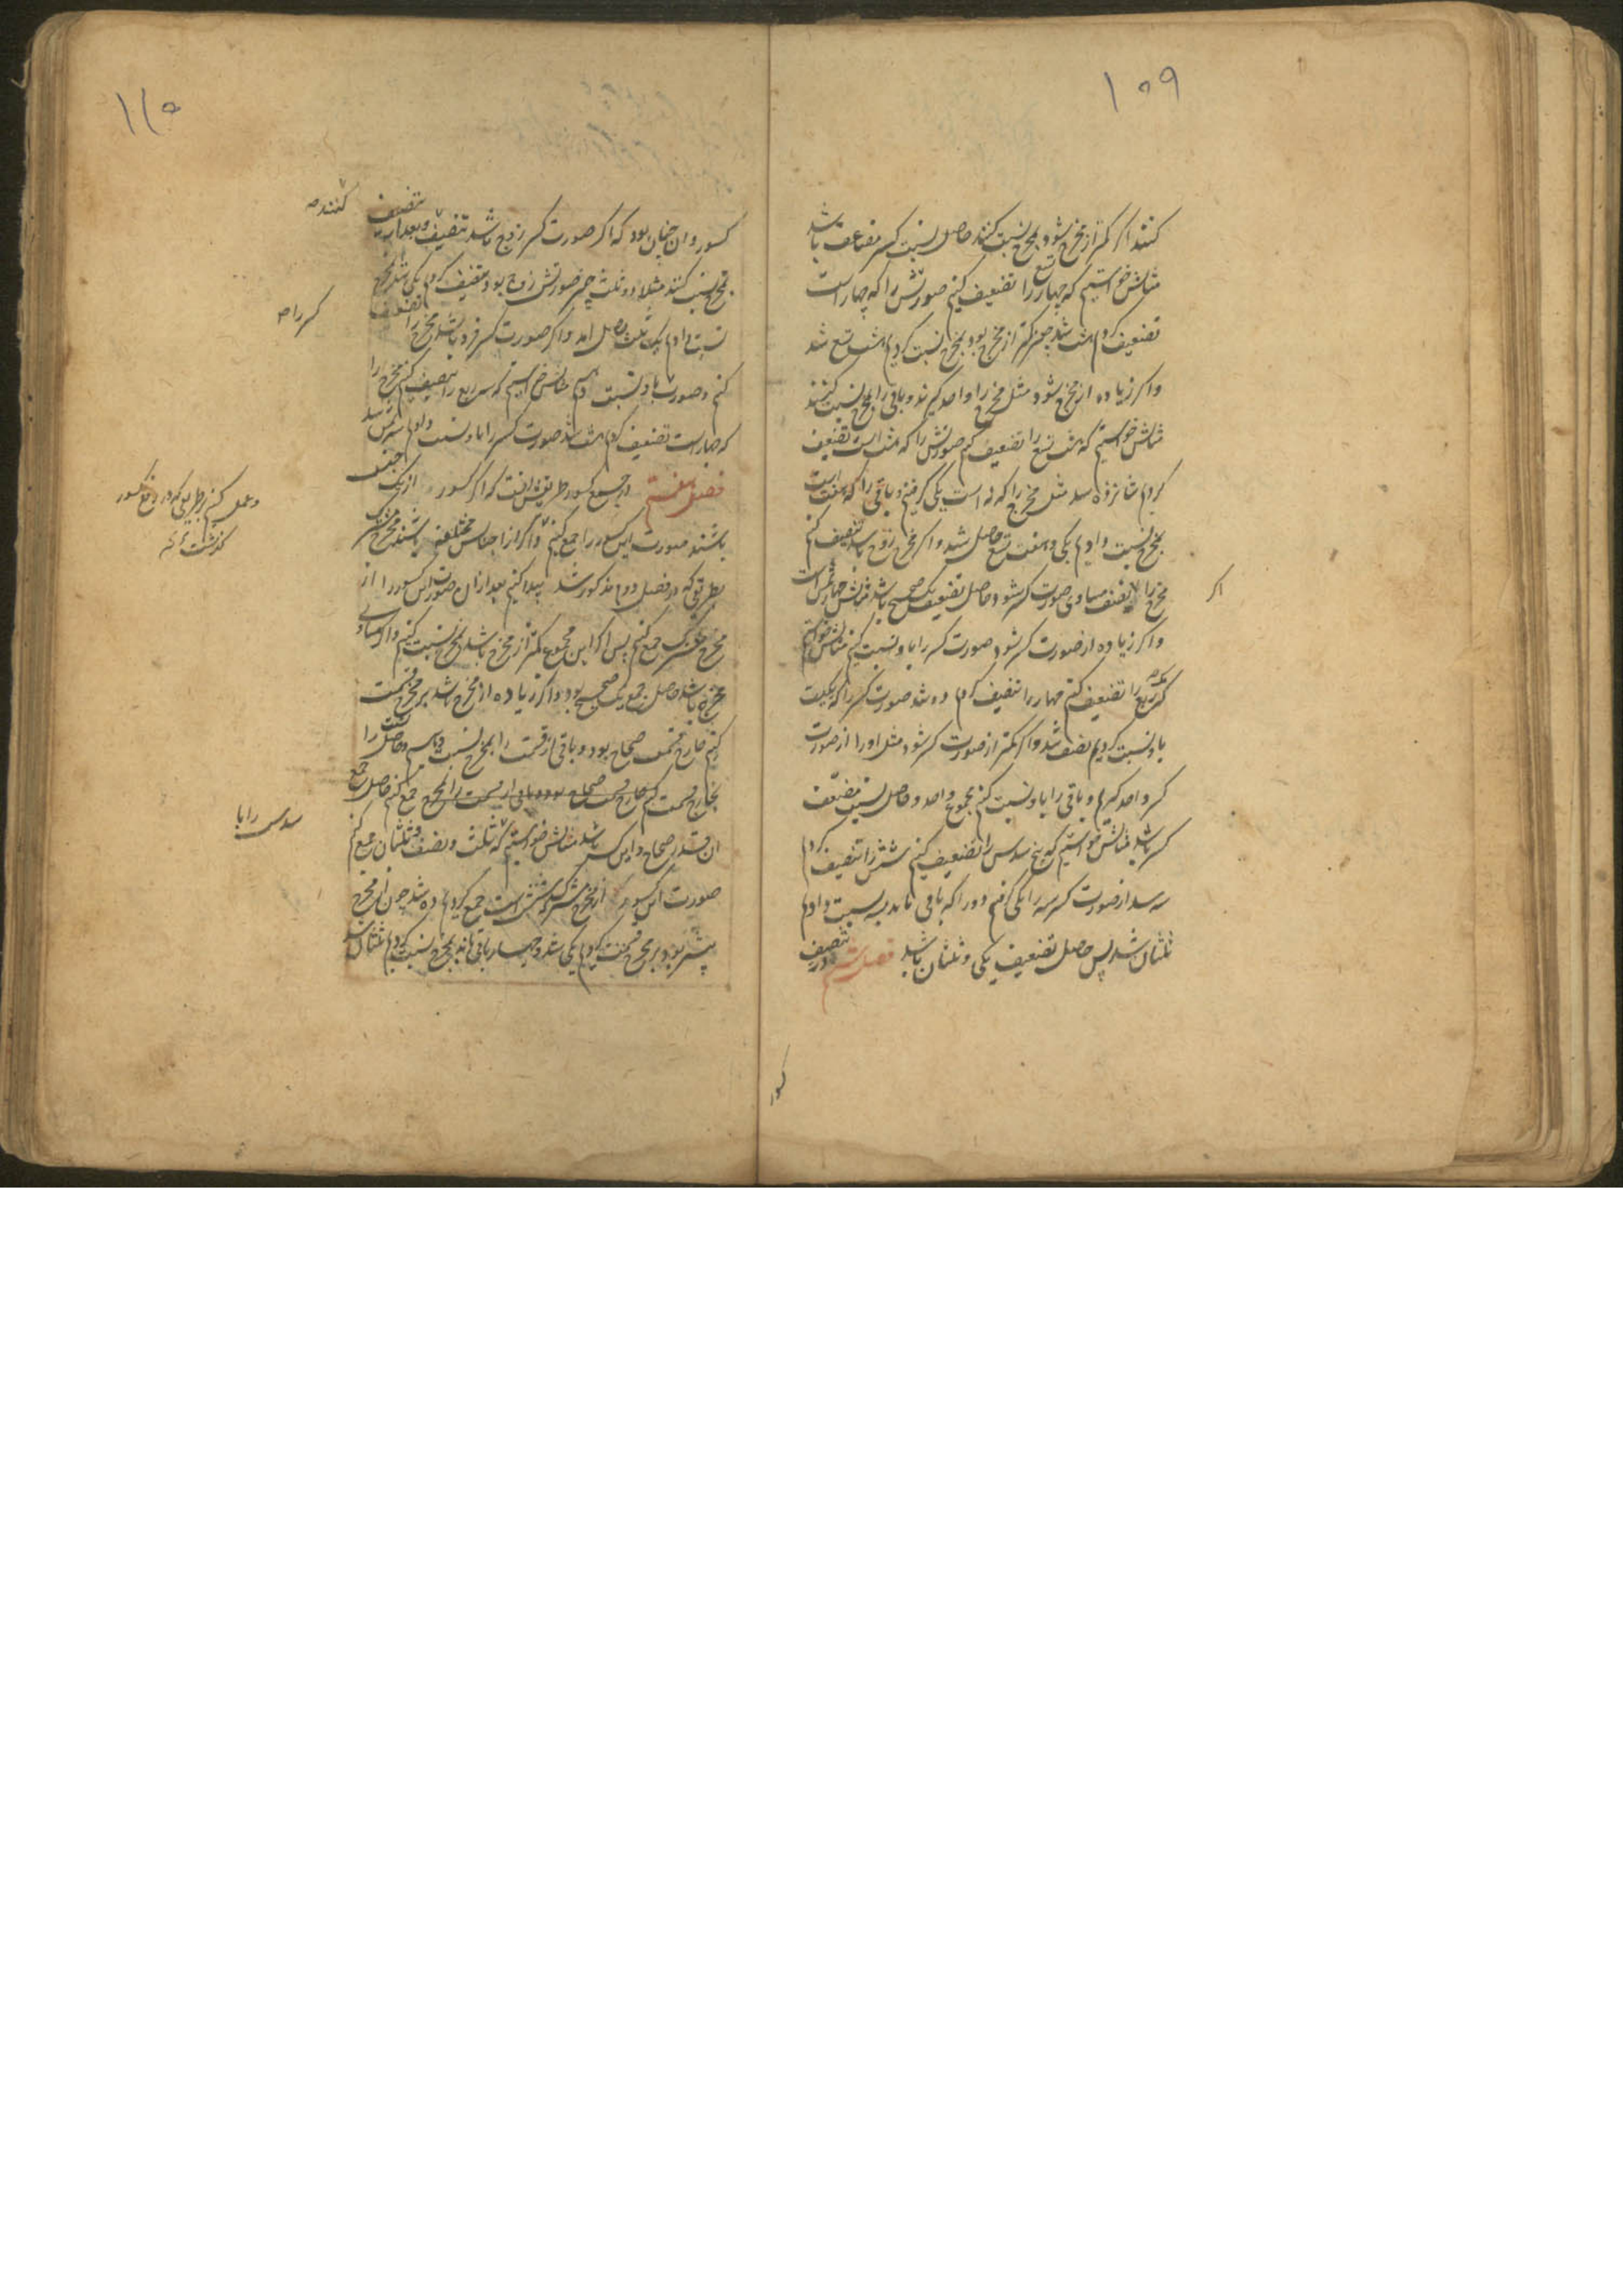 ۱۰۹
کنند اگر کمتر از مخرج شود بمخرج نسبت کنند حاصل نسبت کسر مضاعف باشد
مثالش خواستیم که چهار تسع را تضعیف کنیم صورتش را که چهار است
تضعیف کردیم هشت شد چون کمتر از مخرج بود بمخرج نسبت کردیم هشت تسع شد
و اگر زیاده از مخرج شود مثل مخرج را واحد گیرند و باقی را بمخرج نسبت کنند
مثالش خواستیم که هشت تسع را تضعیف کنیم صورتش را که هشت است تضعیف
کردیم شانزده شد مثل مخرج را که نه است یکی گرفتیم و باقی را که هفت است
بمخرج نسبت دادیم یکی و هفت تسع حاصل شد و اگر مخرج زوج باشد تنصیف کنیم
مخرج را اگر نصف مساوی صورت کسر شود حاصل تضعیف یک صحیح باشد مثالش
و اگر زیاده از صورت کسر شود صورت کسر را باو نسبت کنیم مثالش خواستیم
که ربع را تضعیف کنیم چهار را تنصیف کردیم دو شد صورت کسر را که یکیست
باو نسبت کردیم نصف شد و اگر کمتر از صورت کسر شود مثل او را از صورت
کسر واحد گیریم و باقی را باو نسبت کنیم مجموع واحد و حاصل نسبت مضعف
کسر باشد مثالش خواستیم که پنج سدس را تضعیف کنیم شش را تنصیف کردیم
سه شد از صورت کسر سه را یکی گرفتیم و دو را که باقی ماند بسه نسبت دادیم
ثلثان شد پس حاصل تضعیف یکی و ثلثان باشد فصل ششم در تنصیف
اگر
کسور
۱۱۰
کسور و ان چنان بود که اگر صورت کسر زوج باشد تنصیف و بعد از تنصیف
بمخرج نسبت کنند مثلا دو ثلث چون صورتش زوج بود تنصیف کردیم یکی شد بمخرج
نسبت دادیم یک ثلث حاصل امد و اگر صورت کسر فرد باشد مخرج را تضعیف
کنیم و صورت باو نسبت دهیم مثالش خواستیم که سه ربع را تنصیف کنیم مخرج را
که چهار است تضعیف کردیم هشت شد صورت کسر را باو نسبت دادیم
فصل هفتم در جمع کسور طریقش انست که اگر کسور از یک جنس
باشند صورت این کسور را جمع کنیم و اگر از اجناس مختلفه باشند مخرج مشترک
بطریقی که در فصل دوم مذکور شد پیدا کنیم بعد از ان صورت این کسور را از
مخرج مشترک جمع کنیم پس اگر این مجموع کمتر از مخرج باشد بمخرج نسبت کنیم و اگر مساوی
مخرج باشد حاصل جمع یک صحیح بود و اگر زیاده از مخرج باشد بر مخرج قسمت
کنیم خارج قسمت صحاح بود و باقی از قسمت را بمخرج نسبت دهیم و حاصل نسبت را
بخارج قسمت جمع کنیم حاصل جمع
ان قدر صحاح و این کسر باشد مثالش خواستیم که ثلث و نصف و ثلثان جمع کنیم
صورت این کسور از مخرج مشترک که شش است جمع کردیم ده شد چون از مخرج
بیشتر بود بر مخرج قسمت کردیم یکی شد و چهار باقی ماند بمخرج نسبت کردیم ثلثان شد
کنند
کسر را
و عمل کنیم بطریقی که در رفع کسور
گذشت
سدس را با